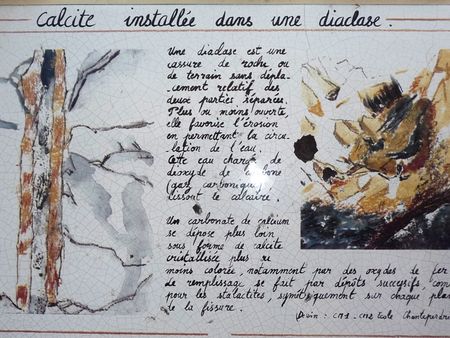 Calcite installée dans une diaclase.
Une diaclase est une
cassure de roche ou
de terrain sans dépla-
cement relatif des
deux parties séparées.
Plus ou moins ouverte,
elle favorise l'érosion
en permettant la circu-
lation de l'eau.
Cette eau chargée de
dioxyde de carbone
(gaz carbonique)
dissout le calcaire.
Un carbonate de calcium
se dépose plus loin
sous forme de calcite
cristallisée plus ou
moins colorée, notamment par des oxydes de fer
de remplissage se fait par dépôts successifs, com
pour les stalactites, symétriquement sur chaque plan
de la fissure.
Dessin : CM1-CM2 école Chanteperdrix